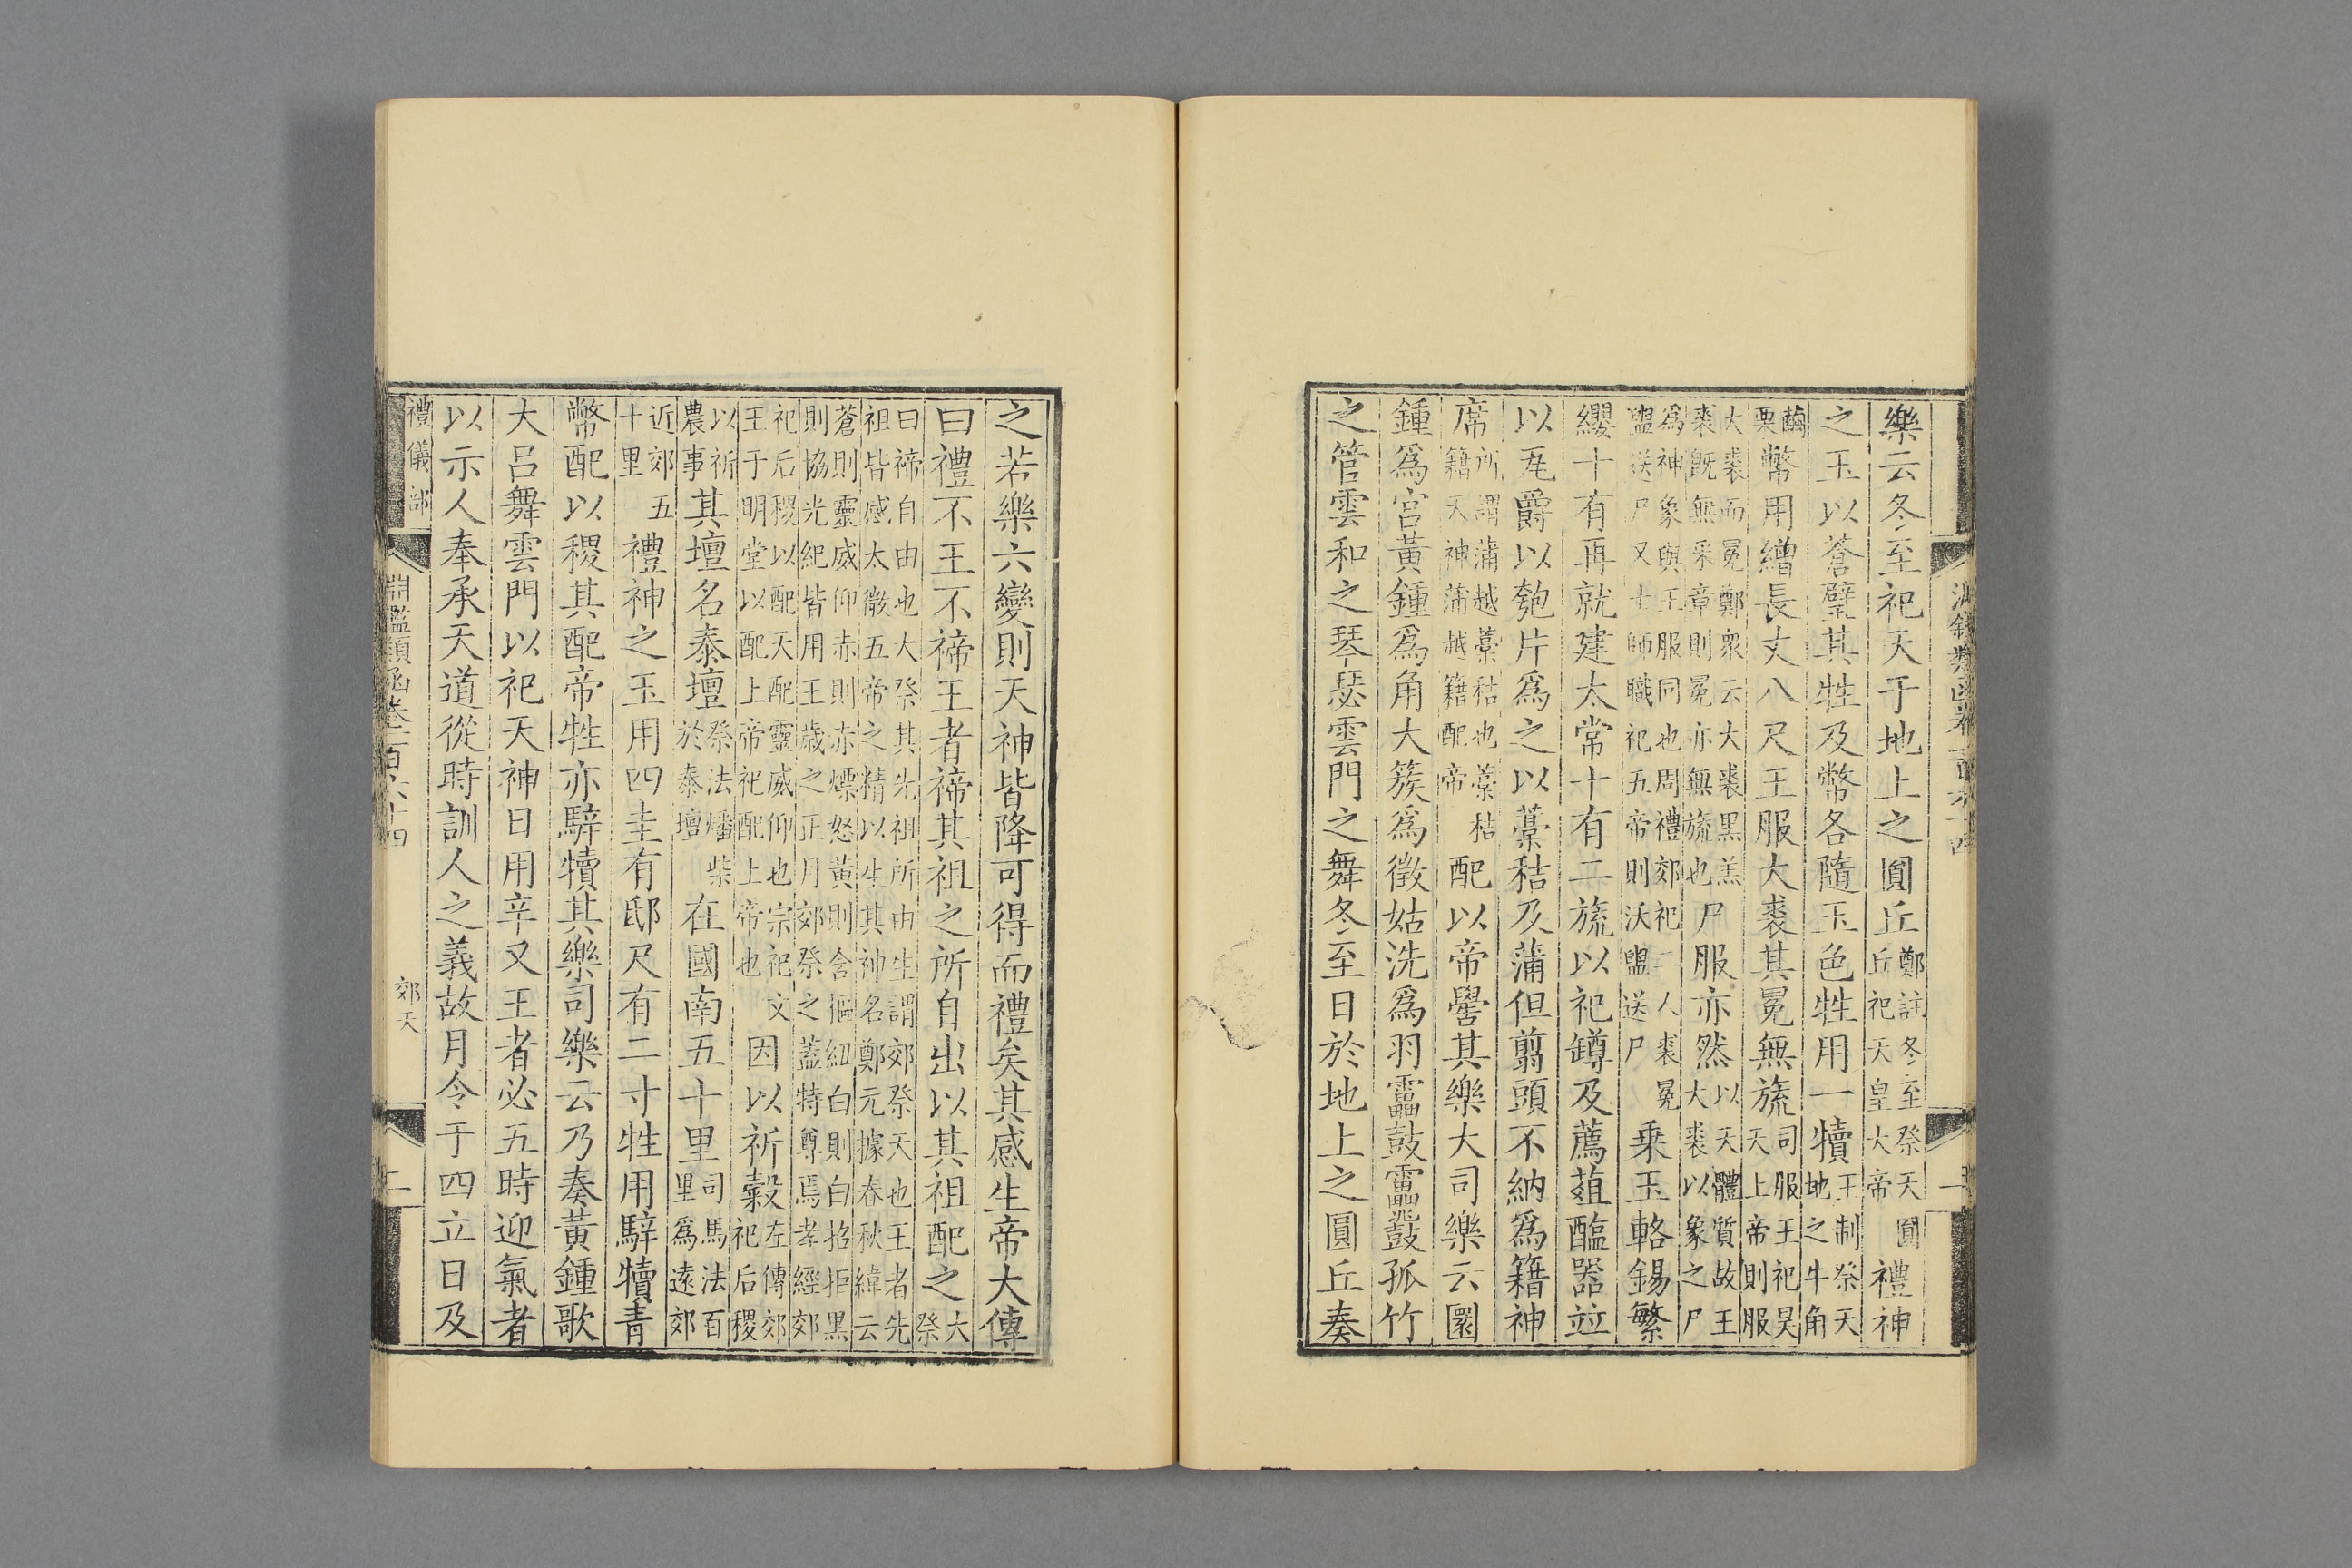 樂云冬至祀天于地上之圓丘鄭註冬至祭天圓丘祀天皇大帝禮神
之玉以蒼璧其牲及幣各隨玉色牲用一犢王制祭天地之牛角
繭栗幣用繒長丈八尺王服大裘其冕無旒司服王祀昊天上帝則服
大裘而冕鄭衆云大裘黑羔裘既無采章則冕亦無旒也尸服亦然以天體質故王大裘以象之尸
爲神象與王服同也周禮郊祀二人裘冕盥送尸又士師職祀五帝則沃盥送尸乗玉輅錫繁
纓十有再就建太常十有二旒以祀罇及薦葅醢器竝
以瓦爵以匏片爲之以藁秸及蒲但翦頭不納爲籍神
席所謂蒲越藁秸也藁秸籍天神蒲越籍配帝配以帝嚳其樂大司樂云圜
鍾爲宮黃鍾爲角大簇爲徵姑洗爲羽靁鼓靁鼗孤竹
之管雲和之琴瑟雲門之舞冬至日於地上之圓丘奏
之若樂六變則天神皆降可得而禮矣其感生帝大傳
曰禮不王不禘王者禘其祖之所自出以其祖配之大祭
曰禘自由也大祭其先祖所由生謂郊祭天也王者先祖皆感太微五帝之精以生其神名鄭元據春秋緯云
蒼則靈威仰赤則赤熛怒黃則含樞紐白則白招拒黑則協光紀皆用王歲之正月郊祭之蓋特尊焉孝經郊
祀后稷以配天配靈威仰也宗祀文王于明堂以配上帝祀配上帝也因以祈穀左傳郊祀后稷
以祈農事其壇名泰壇祭法燔柴於泰壇在國南五十里司馬法百里爲遠郊
近郊五十里禮神之玉用四圭有邸尺有二寸牲用騂犢青
幣配以稷其配帝牲亦騂犢其樂司樂云乃奏黃鍾歌
大呂舞雲門以祀天神日用辛又王者必五時迎氣者
以示人奉承天道從時訓人之義故月令于四立日及
禮儀部 淵鑑類函卷一百六十四 郊天 二